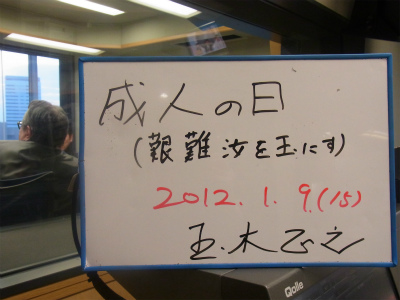 成人の日
(艱難汝を玉にす)
2012.1.9.(15)
玉木正之
Qolle